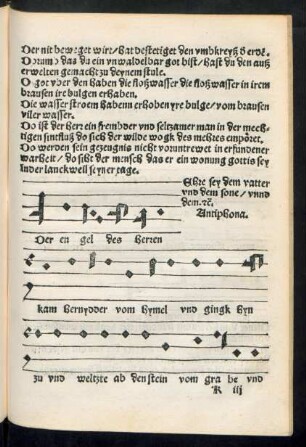 Der nit beweget wirt/ hat bestetiget den vmbkreyß d erdē.
Dorum̄ das du ein vnwaldelbar got bist/ hast du den auß
erwelten gemacht zu deynem stule.
O got vber den haben die floßwasser die floßwasser in irem
brausen ire bulgen erhaben.
Die wasser stroem habenn erhoben yre bulge/ vom brausen
viler wasser.
Do ist der herr ein frembder vnd seltzamer man in der mech-
tigen sintfluß do sich der wilde wogk des mehres empöret.
Do werden sein gezeugnis nicht voruntrewet in erfundener
warheit/ do sicht der mensch das er ein wonung gottis sey
in der lanckweil seyner tage.
Ehre sey dem vatter
vnd dem sone/ vnnd
dem. ꝛc̄.
Antiphona.
Der en gel des herren
kam hernydder vom hymel vnd gingk hyn
zu vnd weltzte ab den stein vom gra be vnd
K iij